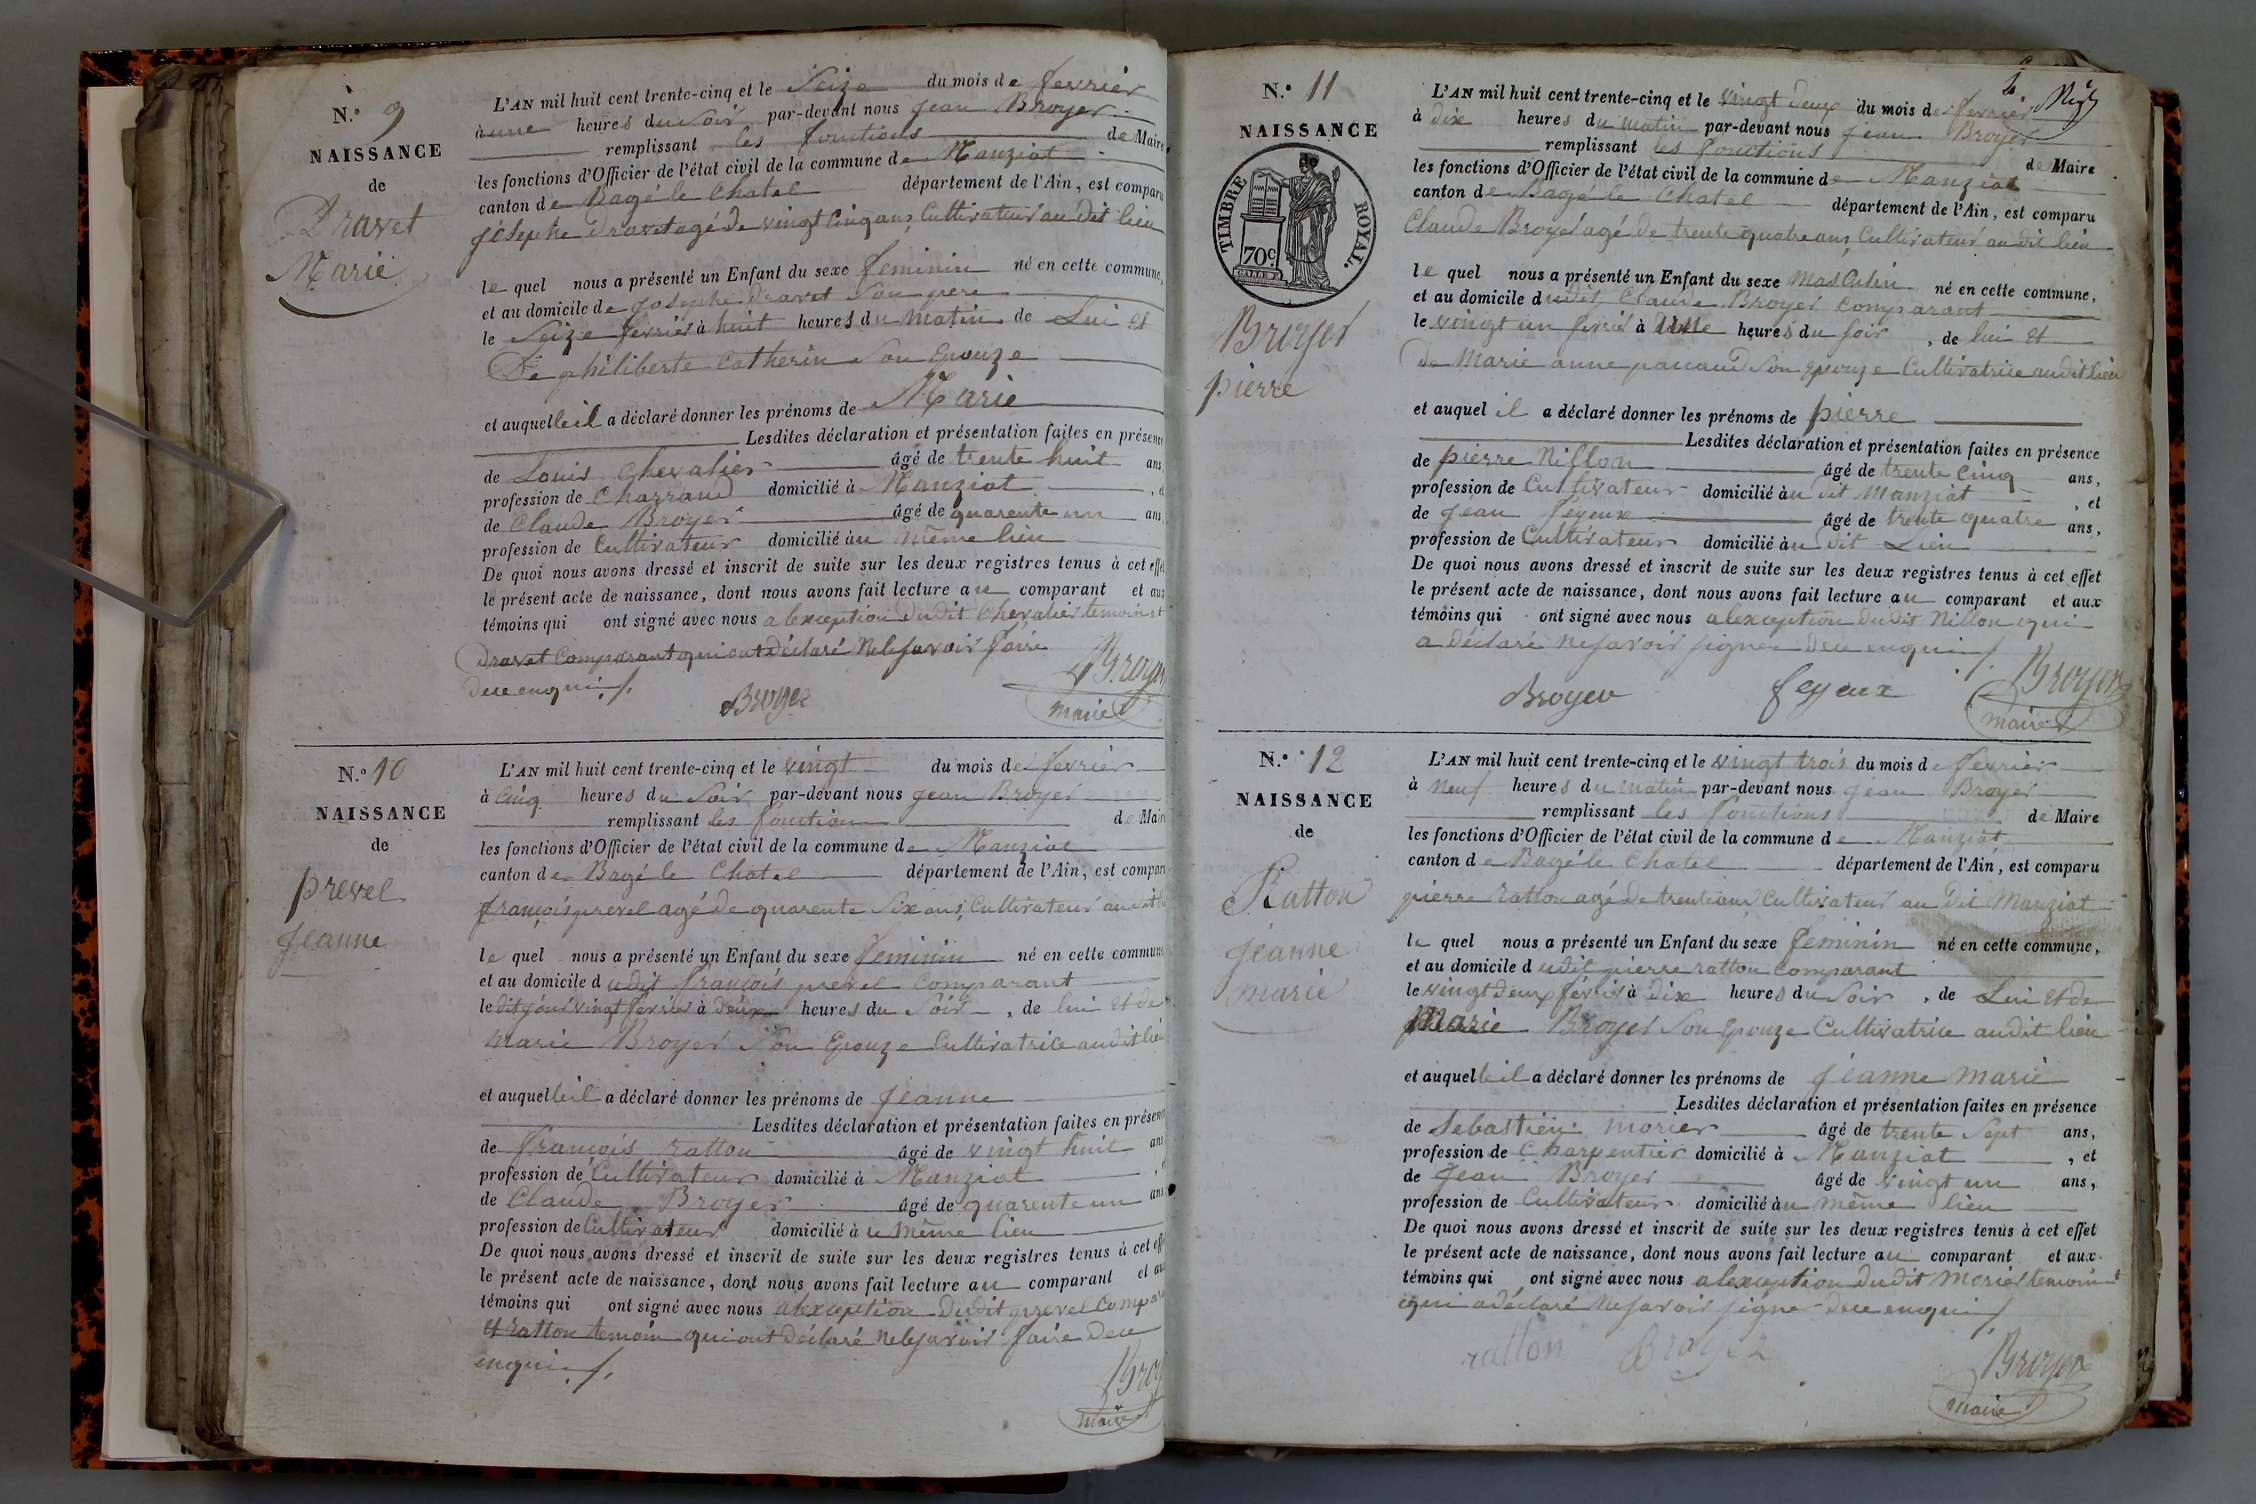 N.º 9
NAISSANCE
de
Dravet
Marie
L'AN mil huit cent trente-cinq et le Seize du mois de fevrier
à une heures du Soir par-devant nous jean Broyer
remplissant les fonctions de Maire
les fonctions d'Officier de l'état civil de la commune de Manziat
canton de Bagé le Chatel département de l'Ain, est comparu
joSephe Dravet agé de vingt Cinq ans, Cultivateur au dit lieu
le quel nous a présenté un Enfant du sexe feminin né en cette commune,
et au domicile de joSephe Dravet Son pere
le Seize fevrier à huit heures du matin de Lui et
De philiberte Catherin Son Epouze
et auquelle il a déclaré donner les prénoms de Marie
Lesdites déclaration et présentation faites en présence
de Louis Chevalier âgé de trente huit ans,
profession de Charrand domicilié à Manziat , et
de Claude Broyer âgé de quarente un ans,
profession de Cultivateur domicilié au même lieu
De quoi nous avons dressé et inscrit de suite sur les deux registres tenus à cet effet
le présent acte de naissance, dont nous avons fait lecture au comparant et aux
témoins qui ont signé avec nous a lexception dudit Chevalier temoin et
Dravet Comparant qui ont déclaré Ne le Savoir faire
Dece enquis
Broyer
Broyer
maire
N.º 10
NAISSANCE
de
prevel
jeanne
L'AN mil huit cent trente-cinq et le vingt du mois de fevrier
à Cinq heures du Soir par-devant nous jean Broyer
remplissant les fonction de Maire
les fonctions d'Officier de l'état civil de la commune de Manziat
canton de Bagé le Chatel département de l'Ain, est comparu
françois prevel agé de quarente Six ans, Cultivateur au dit
le quel nous a présenté un Enfant du sexe feminin né en cette commune
et au domicile dudit françois prevel Comparant
le dit jour vingt fevrier à Deux heures du Soir , de lui et de
Marie Broyer Son Epouze Cultivatrice au dit lieu
et auquelle il a déclaré donner les prénoms de jeanne
Lesdites déclaration et présentation faites en présence
de françois ratton âgé de vingt huit ans
profession de Cultivateur domicilié à Manziat , et
de Claude Broyer âgé de quarente un ans
profession de Cultivateur domicilié au même lieu
De quoi nous avons dressé et inscrit de suite sur les deux registres tenus à cet effet
le présent acte de naissance, dont nous avons fait lecture au comparant et aux
témoins qui ont signé avec nous alexception Dudit prevel Compar
et ratton temoin qui ont déclaré Ne le Savoir faire Dece
enquis
Broy
maire
N.º 11
NAISSANCE
de
TIMBRE ROYAL.
70 c.
Broyer
pierre
L'AN mil huit cent trente-cinq et le vingt deux du mois de fevrier
à dix heures du matin par-devant nous jean Broyer
remplissant les fonctions de Maire
les fonctions d'Officier de l'état civil de la commune de Manziat
canton de Bagé le Chatel département de l'Ain, est comparu
Claude Broyer agé de trente quatre ans, Cultivateur au dit lieu
le quel nous a présenté un Enfant du sexe masculin né en cette commune,
et au domicile dudit Claude Broyer Comparant
le vingt un fevrier à une heures du soir , de lui et
de Marie anne pacaud Son Epouze Cultivatrice au dit lieu
et auquel il a déclaré donner les prénoms de pierre
Lesdites déclaration et présentation faites en présence
de pierre Nillon âgé de trente Cinq ans,
profession de Cultivateur domicilié au dit Manziat , et
de jean feyeux âgé de trente quatre ans,
profession de Cultivateur domicilié au dit Lieu
De quoi nous avons dressé et inscrit de suite sur les deux registres tenus à cet effet
le présent acte de naissance, dont nous avons fait lecture au comparant et aux
témoins qui ont signé avec nous a lexception Dudit Nillon qui
a déclaré ne savoir signer Dece enquis
Broyer feyeux Broyer
maire
N.º 12
NAISSANCE
de
Ratton
jeanne
marie
L'AN mil huit cent trente-cinq et le vingt trois du mois de fevrier
à Neuf heures du matin par-devant nous jean Broyer
remplissant les fonctions de Maire
les fonctions d'Officier de l'état civil de la commune de Manziat
canton de Bagé le Chatel département de l'Ain, est comparu
pierre ratton agé de trente ans, Cultivateur au dit Manziat
le quel nous a présenté un Enfant du sexe feminin né en cette commune,
et au domicile dudit pierre ratton Comparant
le vingt deux fevrier à dix heures du Soir , de Lui et de
Marie Broyer Son Epouze Cultivatrice au dit lieu
et auquelle il a déclaré donner les prénoms de jeanne marie
Lesdites déclaration et présentation faites en présence
de Sebastien morier âgé de trente Sept ans,
profession de Charpentier domicilié à Manziat , et
de jean Broyer âgé de vingt un ans,
profession de Cultivateur domicilié au même lieu
De quoi nous avons dressé et inscrit de suite sur les deux registres tenus à cet effet
le présent acte de naissance, dont nous avons fait lecture au comparant et aux
témoins qui ont signé avec nous alexception Dudit Morier temoin
qui a déclaré Ne savoir signer Dece enquis
ratton Broyer Broyer
maire